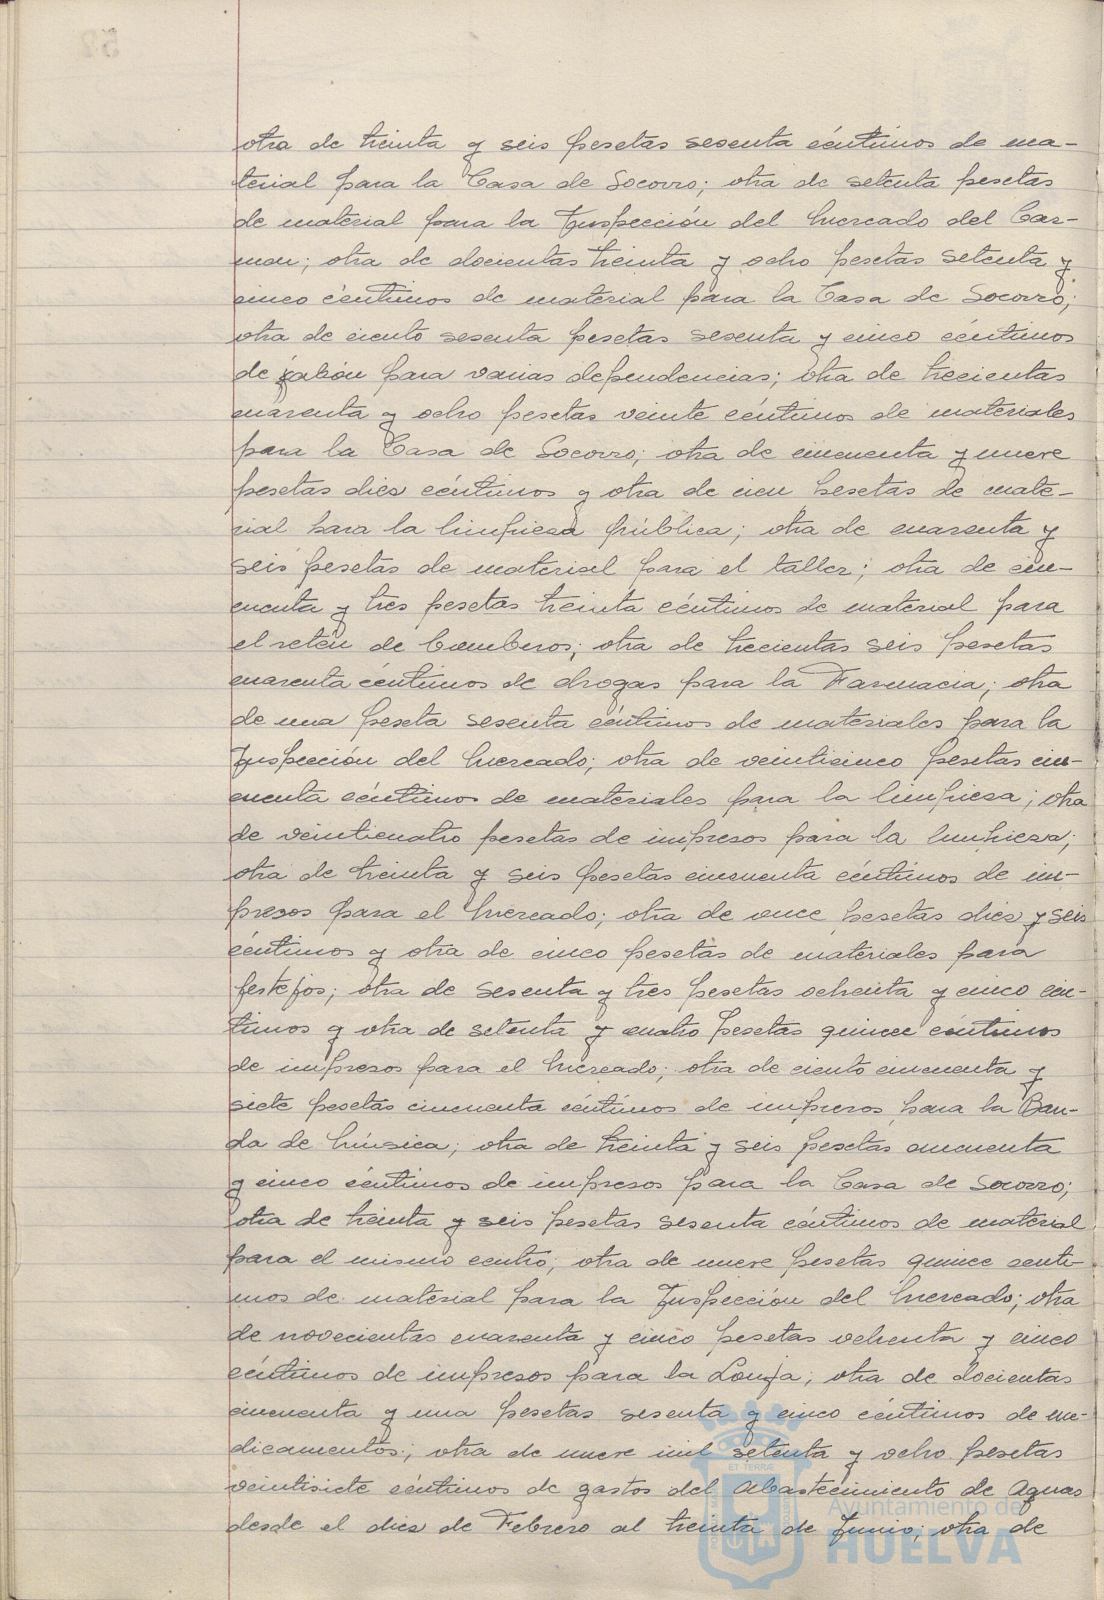 otra de treinta y seis pesetas sesenta céntimos de ma-
terial para la Casa de Socorro; otra de setenta pesetas
de material para la Inspección del Mercado del Car-
men; otra de docientas treinta y ocho pesetas setenta y
cinco céntimos de material para la Casa de Socorro;
otra de ciento sesenta pesetas sesenta y cinco céntimos
de jabón para varias dependencias; otra de trecientas
cuarenta y ocho pesetas veinte céntimos de materiales
para la Casa de Socorro; otra de cincuenta y nueve
pesetas diez céntimos y otra de cien pesetas de mate-
rial para la limpieza pública; otra de cuarenta y
seis pesetas de material para el taller; otra de cin-
cuenta y tres pesetas treinta céntimos de material para
el retén de bomberos; otra de trecientas seis pesetas
cuarenta céntimos de drogas para la Farmacia; otra
de una peseta sesenta céntimos de materiales para la
Inspección del Mercado; otra de veinticinco pesetas cin-
cuenta céntimos de materiales para la limpieza; otra
de veinticuatro pesetas de impresos para la limpieza;
otra de treinta y seis pesetas cincuenta céntimos de im-
presos para el Mercado; otra de once pesetas diez y seis
céntimos y otra de cinco pesetas de materiales para
festejos; otra de sesenta y tres pesetas ochenta y cinco cén-
timos y otra de setenta y cuatro pesetas quince céntimos
de impresos para el Mercado; otra de ciento cincuenta y
siete pesetas cincuenta céntimos de impresos para la Ban-
da de Música; otra de treinta y seis pesetas cincuenta
y cinco céntimos de impresos para la Casa de Socorro;
otra de treinta y seis pesetas sesenta céntimos de material
para el mismo centro; otra de nueve pesetas quince cénti-
mos de material para la Inspección del Mercado; otra
de novecientas cuarenta y cinco pesetas ochenta y cinco
céntimos de impresos para la Lonja; otra de docientas
cincuenta y una pesetas sesenta y cinco céntimos de me-
dicamentos; otra de nueve mil setenta y ocho pesetas
veintisiete céntimos de gastos del Abastecimiento de Aguas
desde el diez de Febrero al treinta de Junio; otra de
Ayuntamiento de
HUELVA